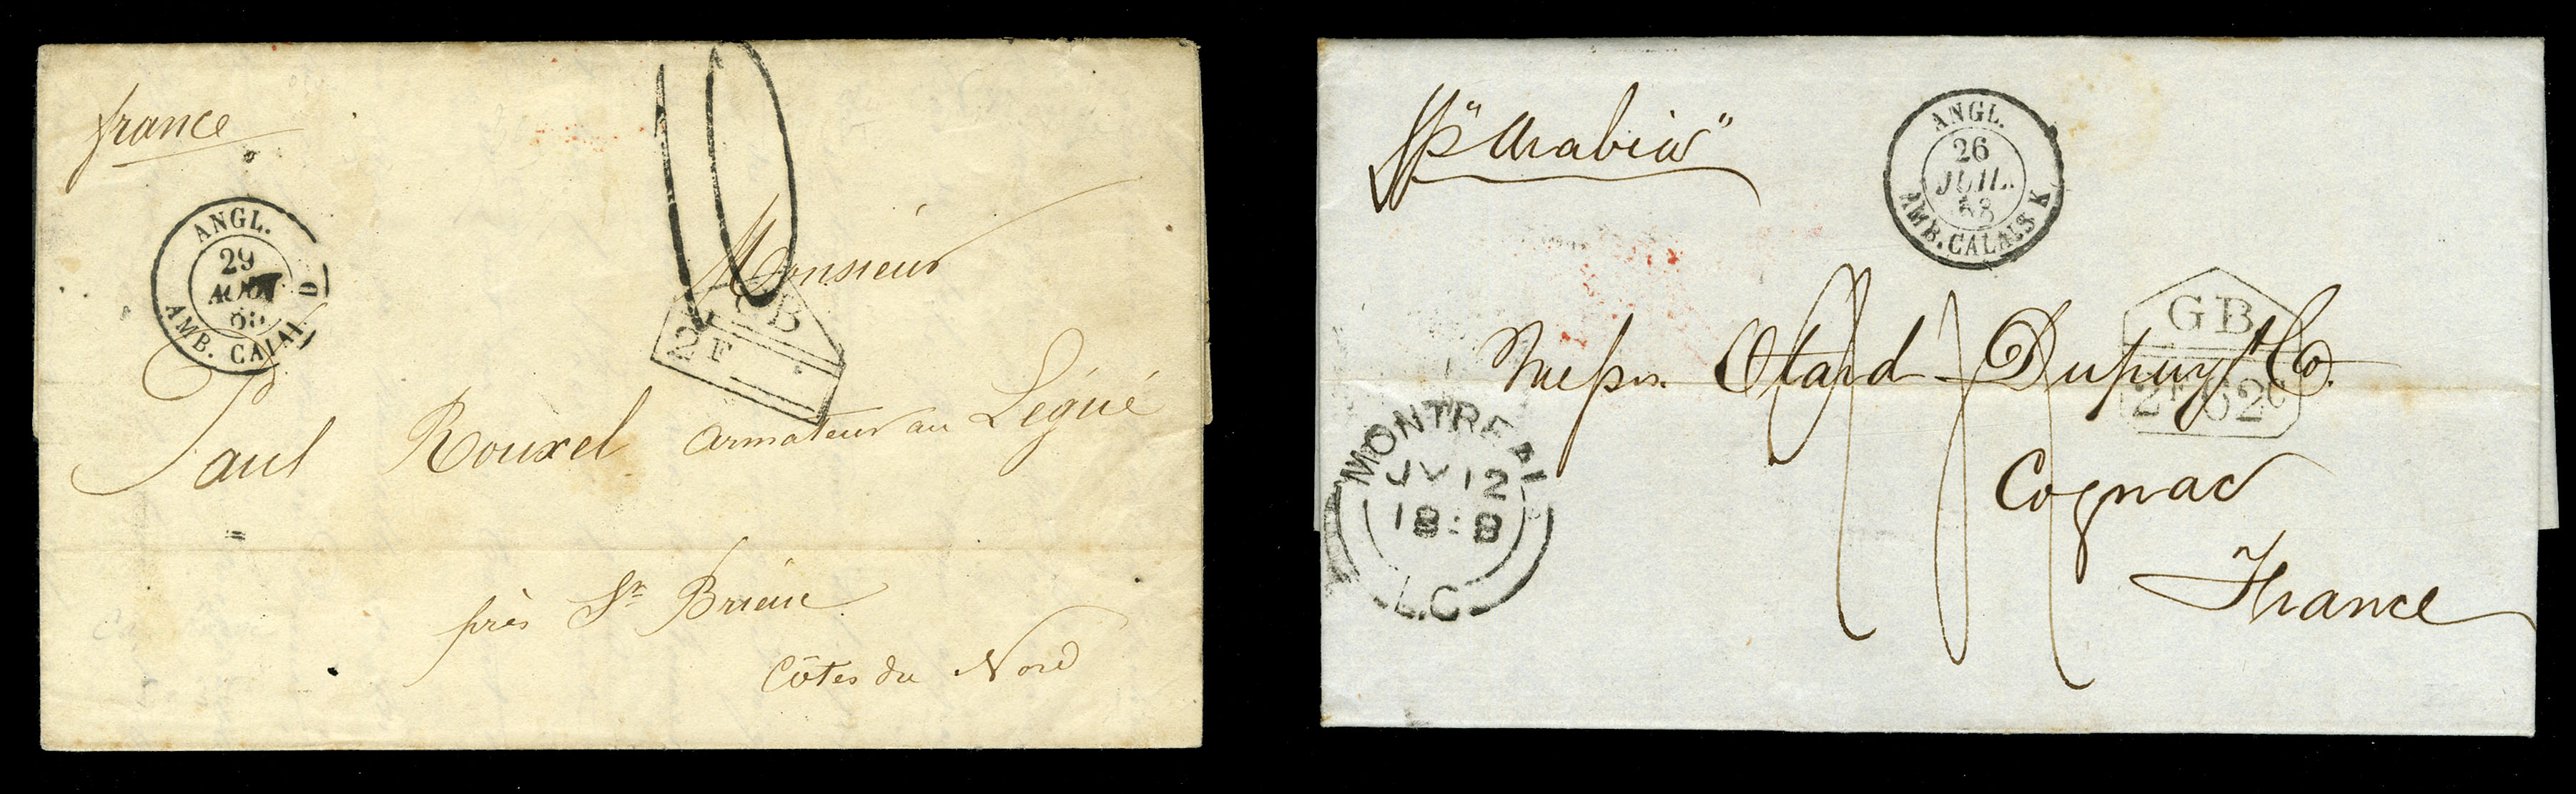 france
10
ANGL.
29
AOUT
AMB. CALAIS D
GB
2F
Monsieur
Paul Rouxel armateur au Légué
près St Brieuc
Côtes du Nord
p "Arabia"
ANGL.
26
JUIL.
58
AMB. CALAIS K
GB
2F 62c
Messrs Otard Dupuy & Co.
Cognac
France
MONTREAL
JY 12
1858
L.C